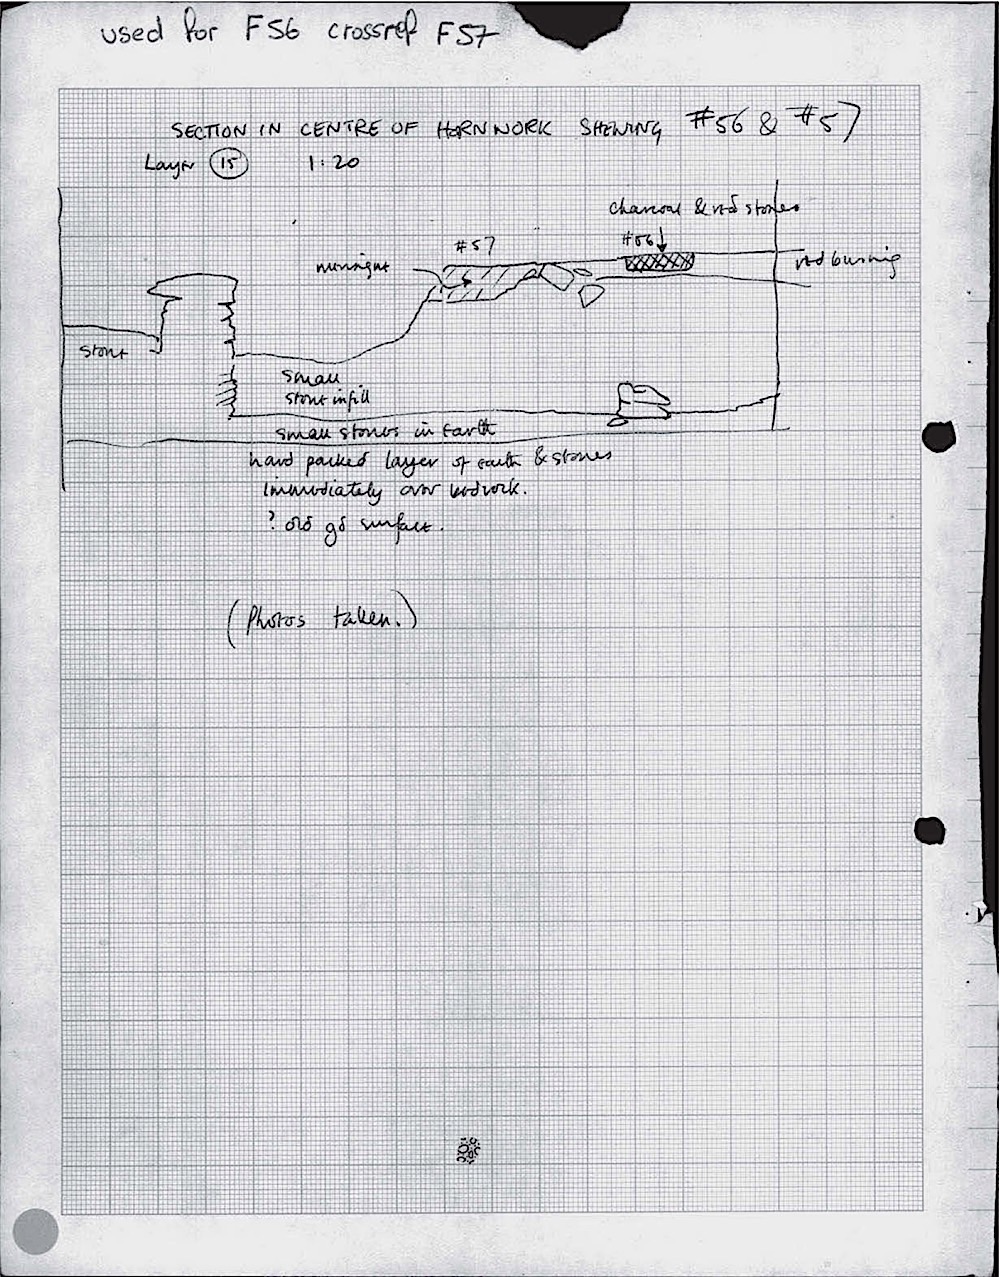 used for F56 crossref F57
SECTION IN CENTRE OF HORNWORK SHEWING #56 & #57
Layer 15 1:20
charcoal & red stones
#57
#56
red burning
stone
small
stone infill
small stones in Earth
hard packed layer of earth & stones
immediately over bedrock.
? old gd surface.
(Photos taken.)